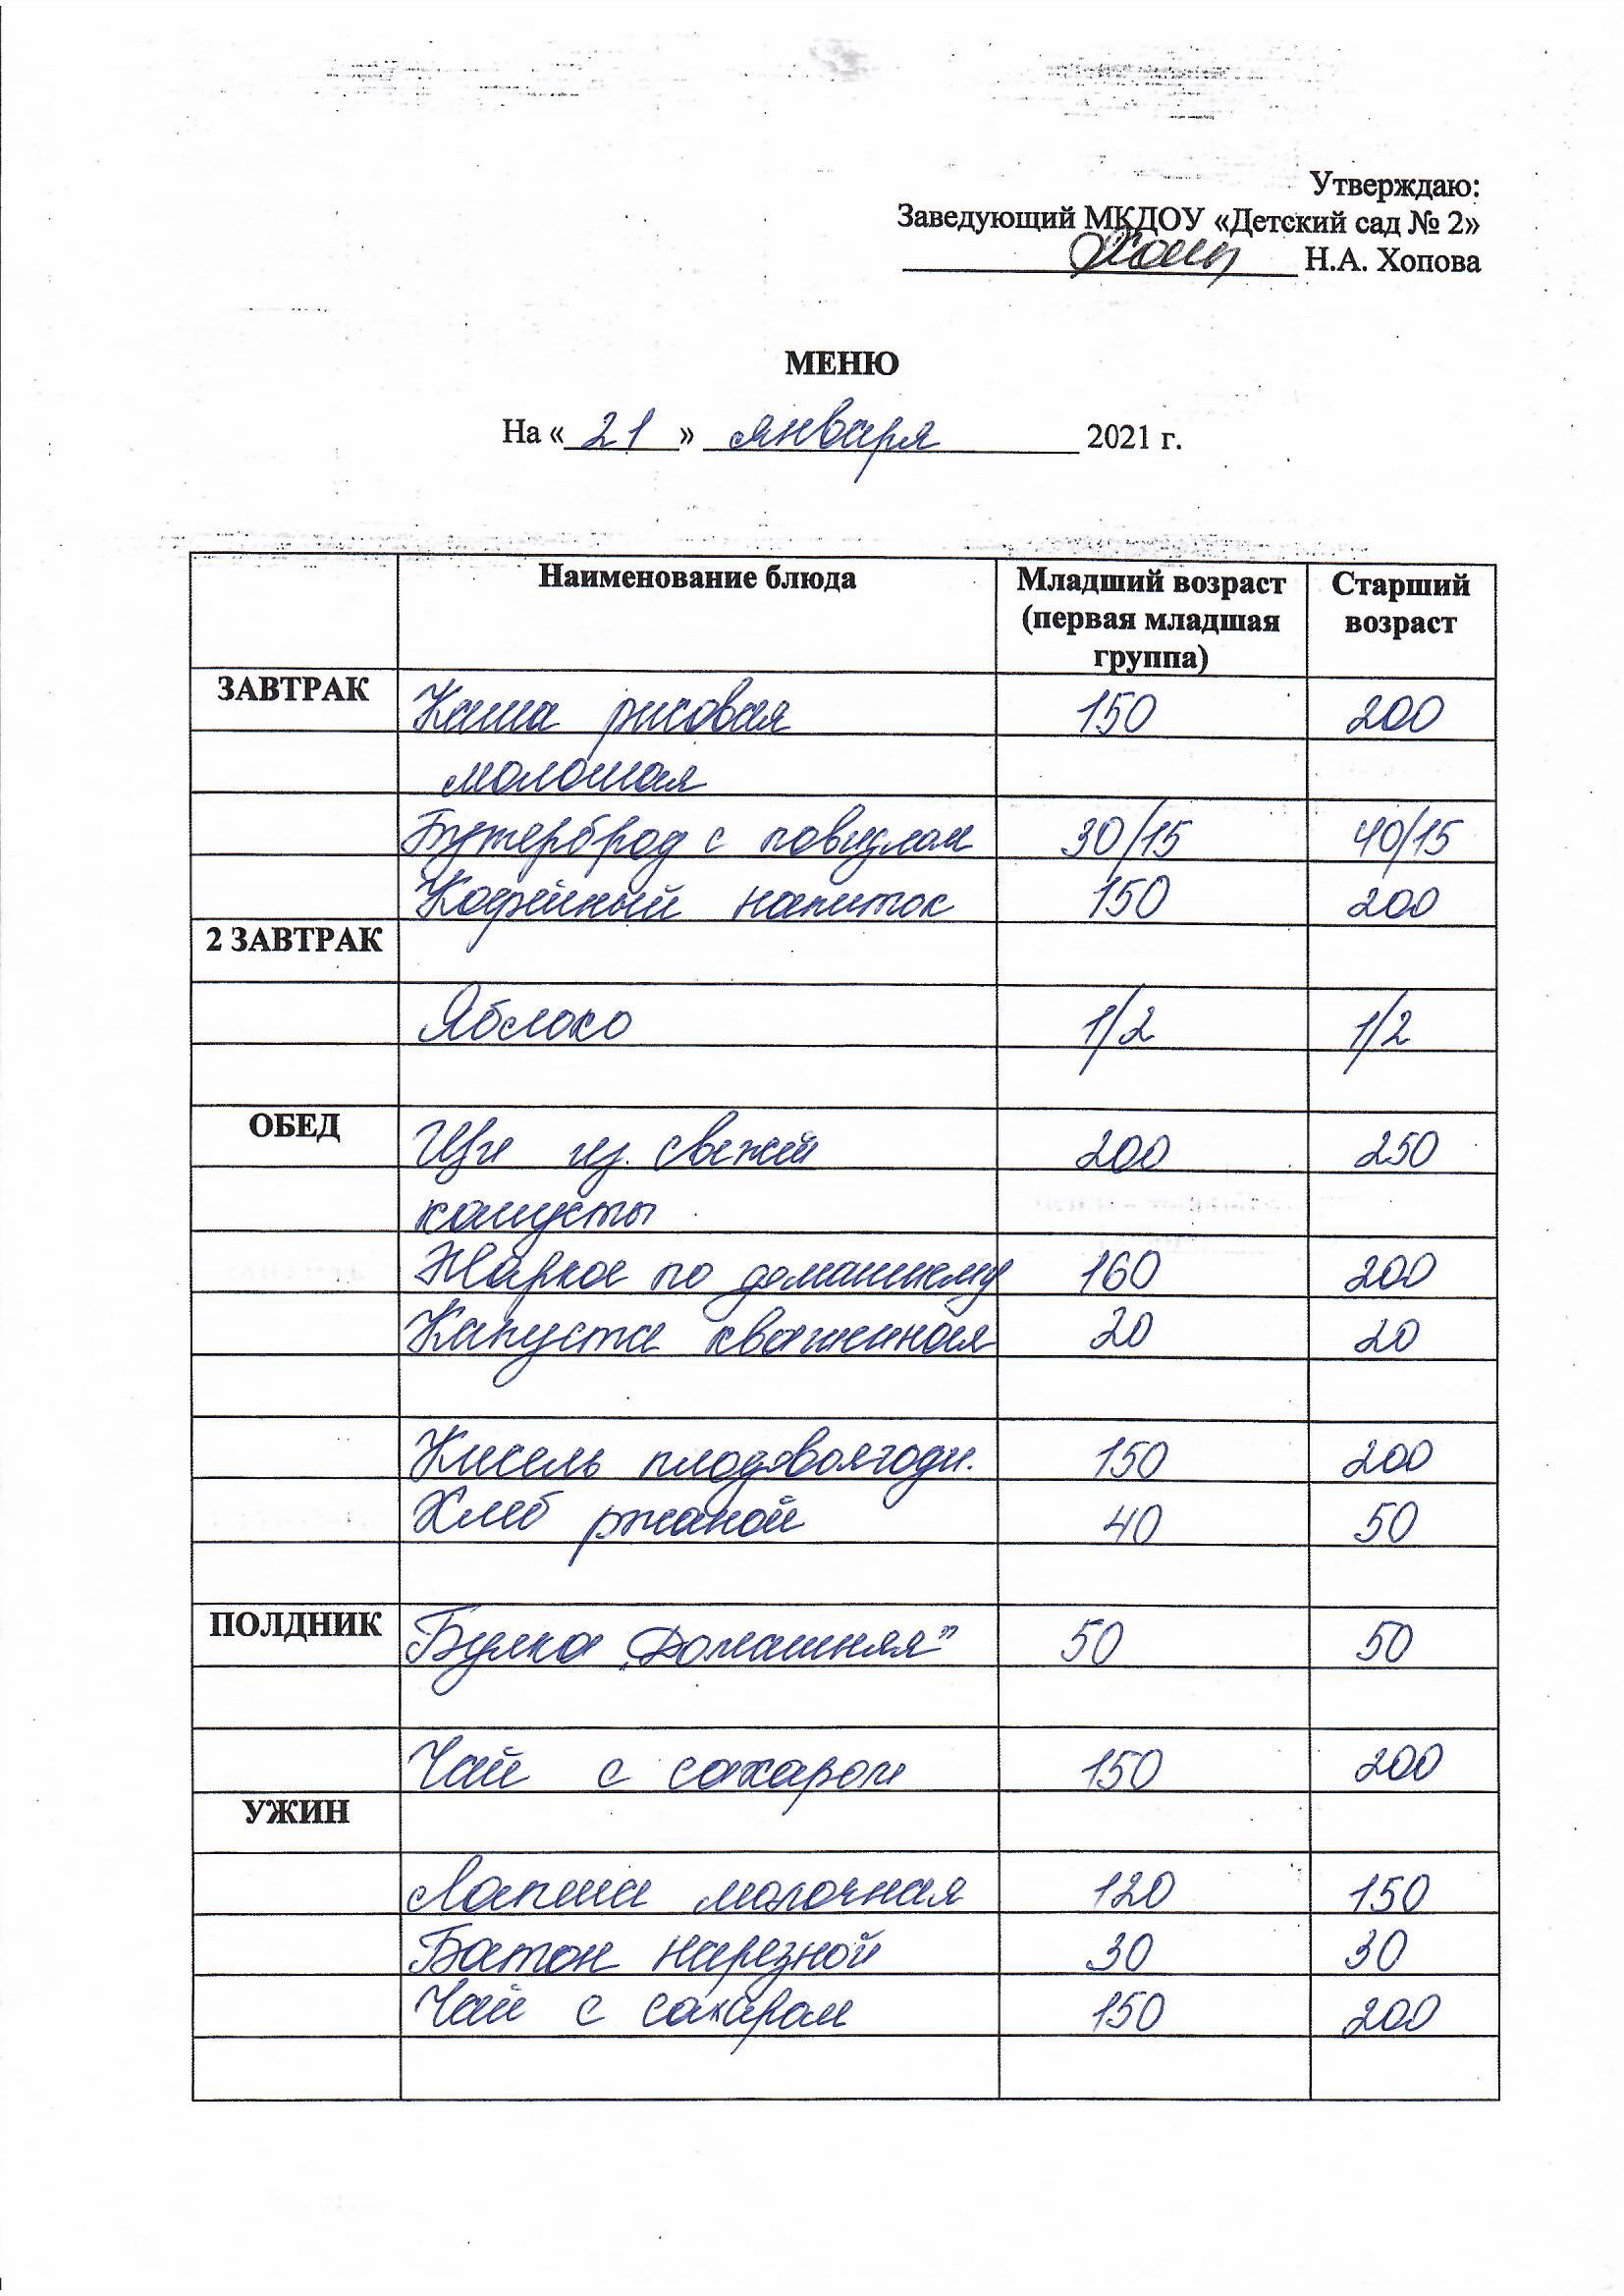 Утверждаю:
Заведующий МКДОУ «Детский сад № 2»
Н.А. Хопова
МЕНЮ
На «21» января 2021 г.
Наименование блюда Младший возраст (первая младшая группа) Старший возраст
ЗАВТРАК Каша рисовая 150 200
молочная
Бутерброд с повидлом 30/15 40/15
Кофейный напиток 150 200
2 ЗАВТРАК
Яблоко 1/2 1/2
ОБЕД Щи из свежей 200 250
капусты
Жаркое по домашнему 160 200
Капуста квашенная 20 20
Кисель плодовоягодн. 150 200
Хлеб ржаной 40 50
ПОЛДНИК Булка „Домашняя” 50 50
Чай с сахаром 150 200
УЖИН
Лапша молочная 120 150
Батон нарезной 30 30
Чай с сахаром 150 200